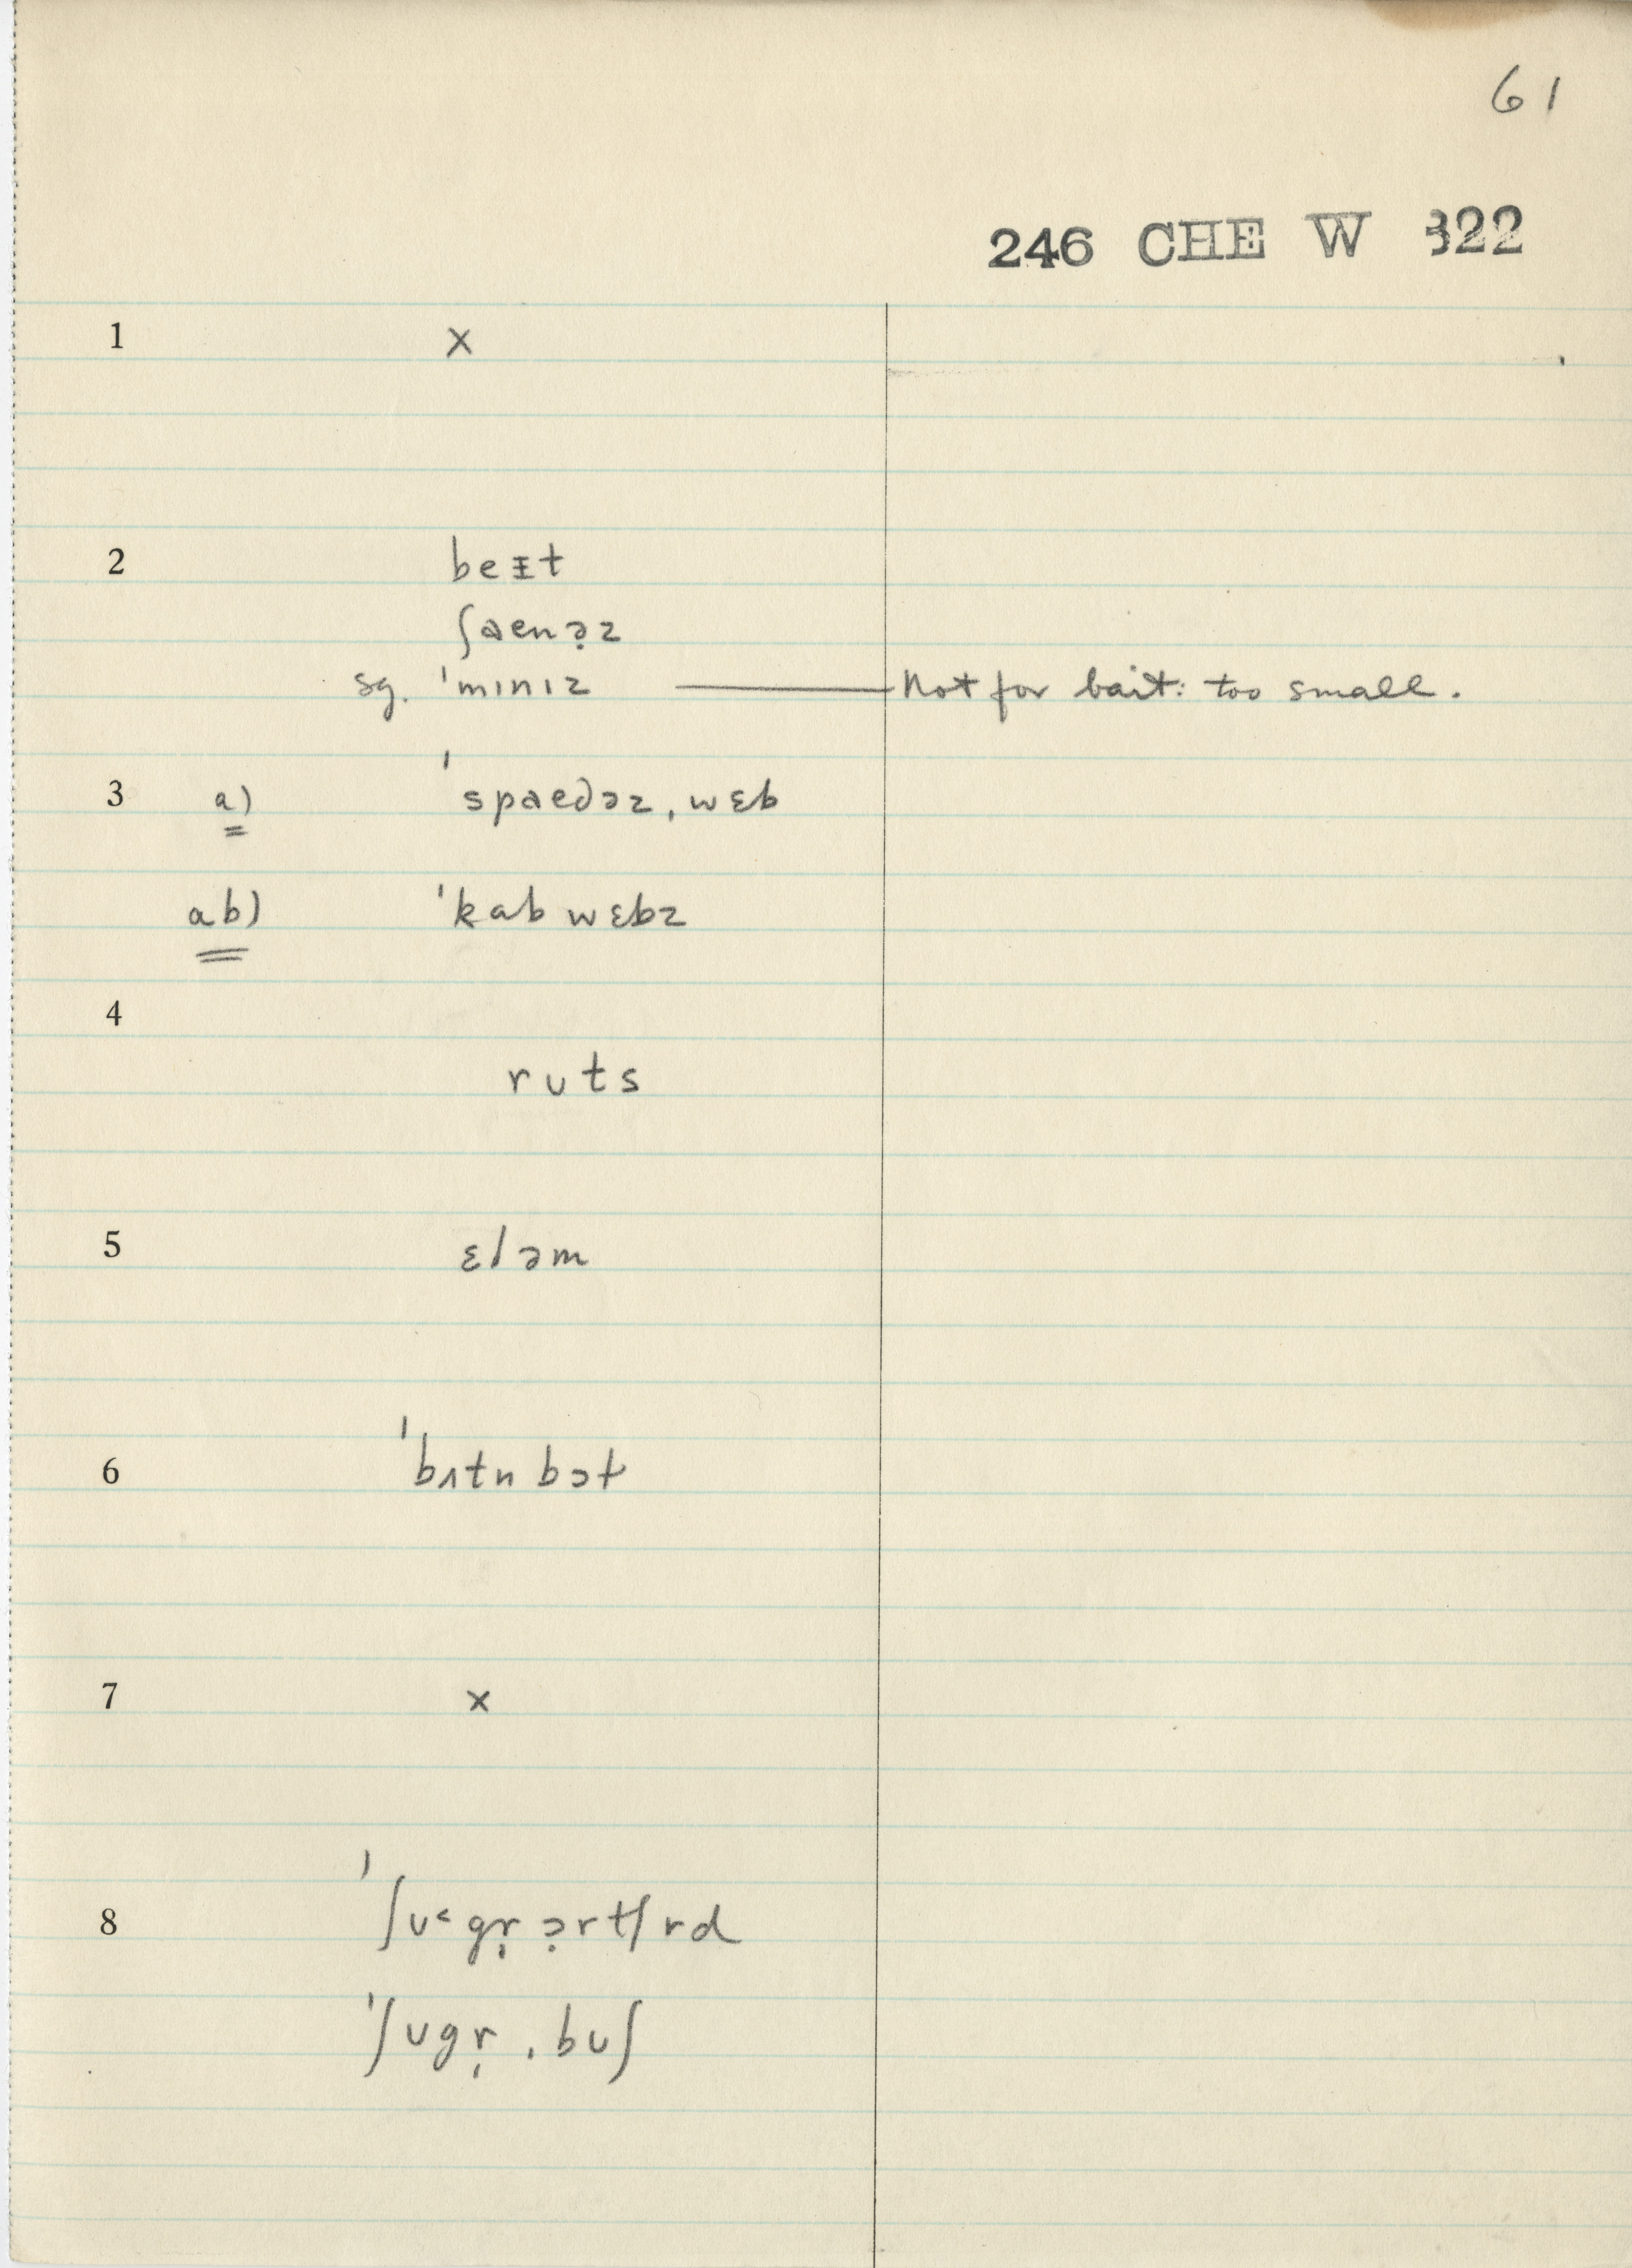 61
246 CHE W 322
1 x
2 beᵻt
ʃaenə̣z
sg. ˈmɪnɪz — Not for bait: too small.
3 a) ˈspaedəz ˌwɛb
ab) ˈkab wɛbz
4
ruts
5 ɛləm
6 ˈbʌtn bɔɫ
7 x
8 ˈʃʊ˂gr̩ ɔ̣rtʃrd
ˈʃʊgr̩ ˌbʊʃ